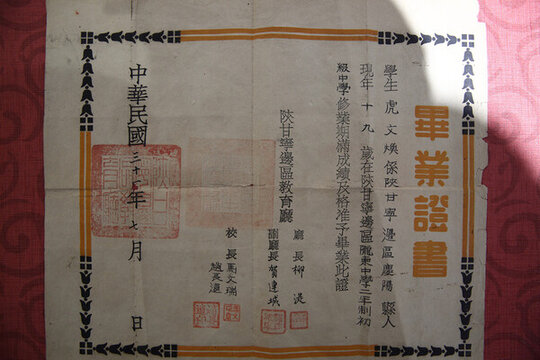 畢業證書
學生 虎文煥係陝甘寧邊區慶陽縣人
現年十九歲在陝甘寧邊區隴東中學三年制初
級中學修業期滿成績及格准予畢業此證
陝甘寧邊區教育廳
廳長柳湜
副廳長賀連城
校長馬文瑞
中華民國三十 年七月 日